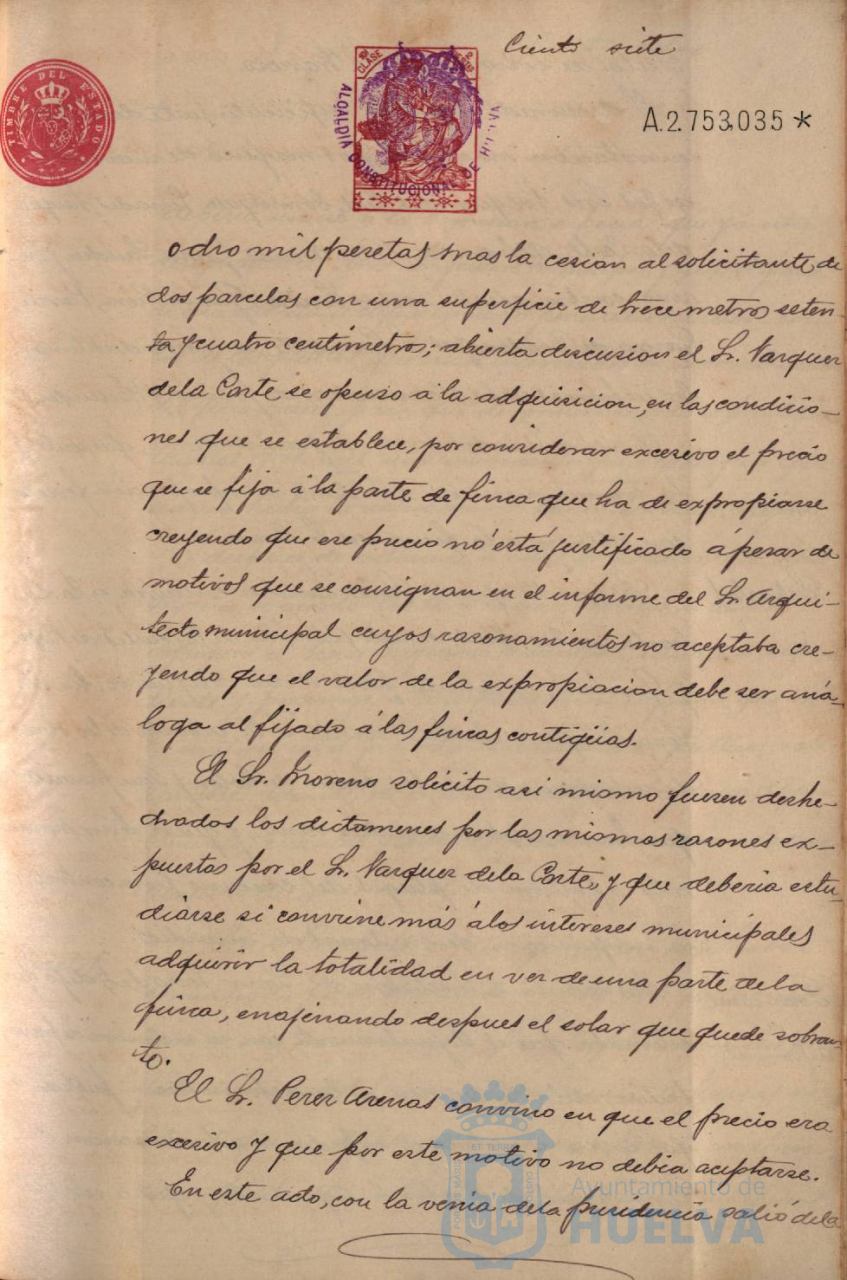 Ciento siete
TIMBRE DEL ESTADO
CLASE
ALCALDIA CONSTITUCIONAL DE HUELVA
A.2.753,035 *
ocho mil pesetas mas la cesion al solicitante de
dos parcelas con una superficie de trece metros seten-
ta y cuatro centimetros; abierta discusion el Sr. Vazquez
de la Corte se opuso á la adquisicion, en las condicio-
nes que se establece, por considerar excesivo el precio
que se fija á la parte de finca que ha de expropiarse
creyendo que ese precio no está justificado á pesar de
motivos que se consignan en el informe del Sr. Arqui-
tecto municipal cuyos razonamientos no aceptaba cre-
yendo que el valor de la expropiacion debe ser aná-
loga al fijado á las fincas contigüas.
El Sr. Moreno solicito asi mismo fuesen deshe-
chados los dictamenes por las mismas razones ex-
puestas por el Sr. Vazquez de la Corte, y que deberia estu-
diarse si conviene más á los intereses municipales
adquirir la totalidad en vez de una parte de la
finca, enajenando despues el solar que quede sobran-
te.
El Sr. Perez Arenas convino en que el precio era
excesivo y que por este motivo no debia aceptarse.
En este acto, con la venia de la presidencia salió de la
Ayuntamiento de
HUELVA